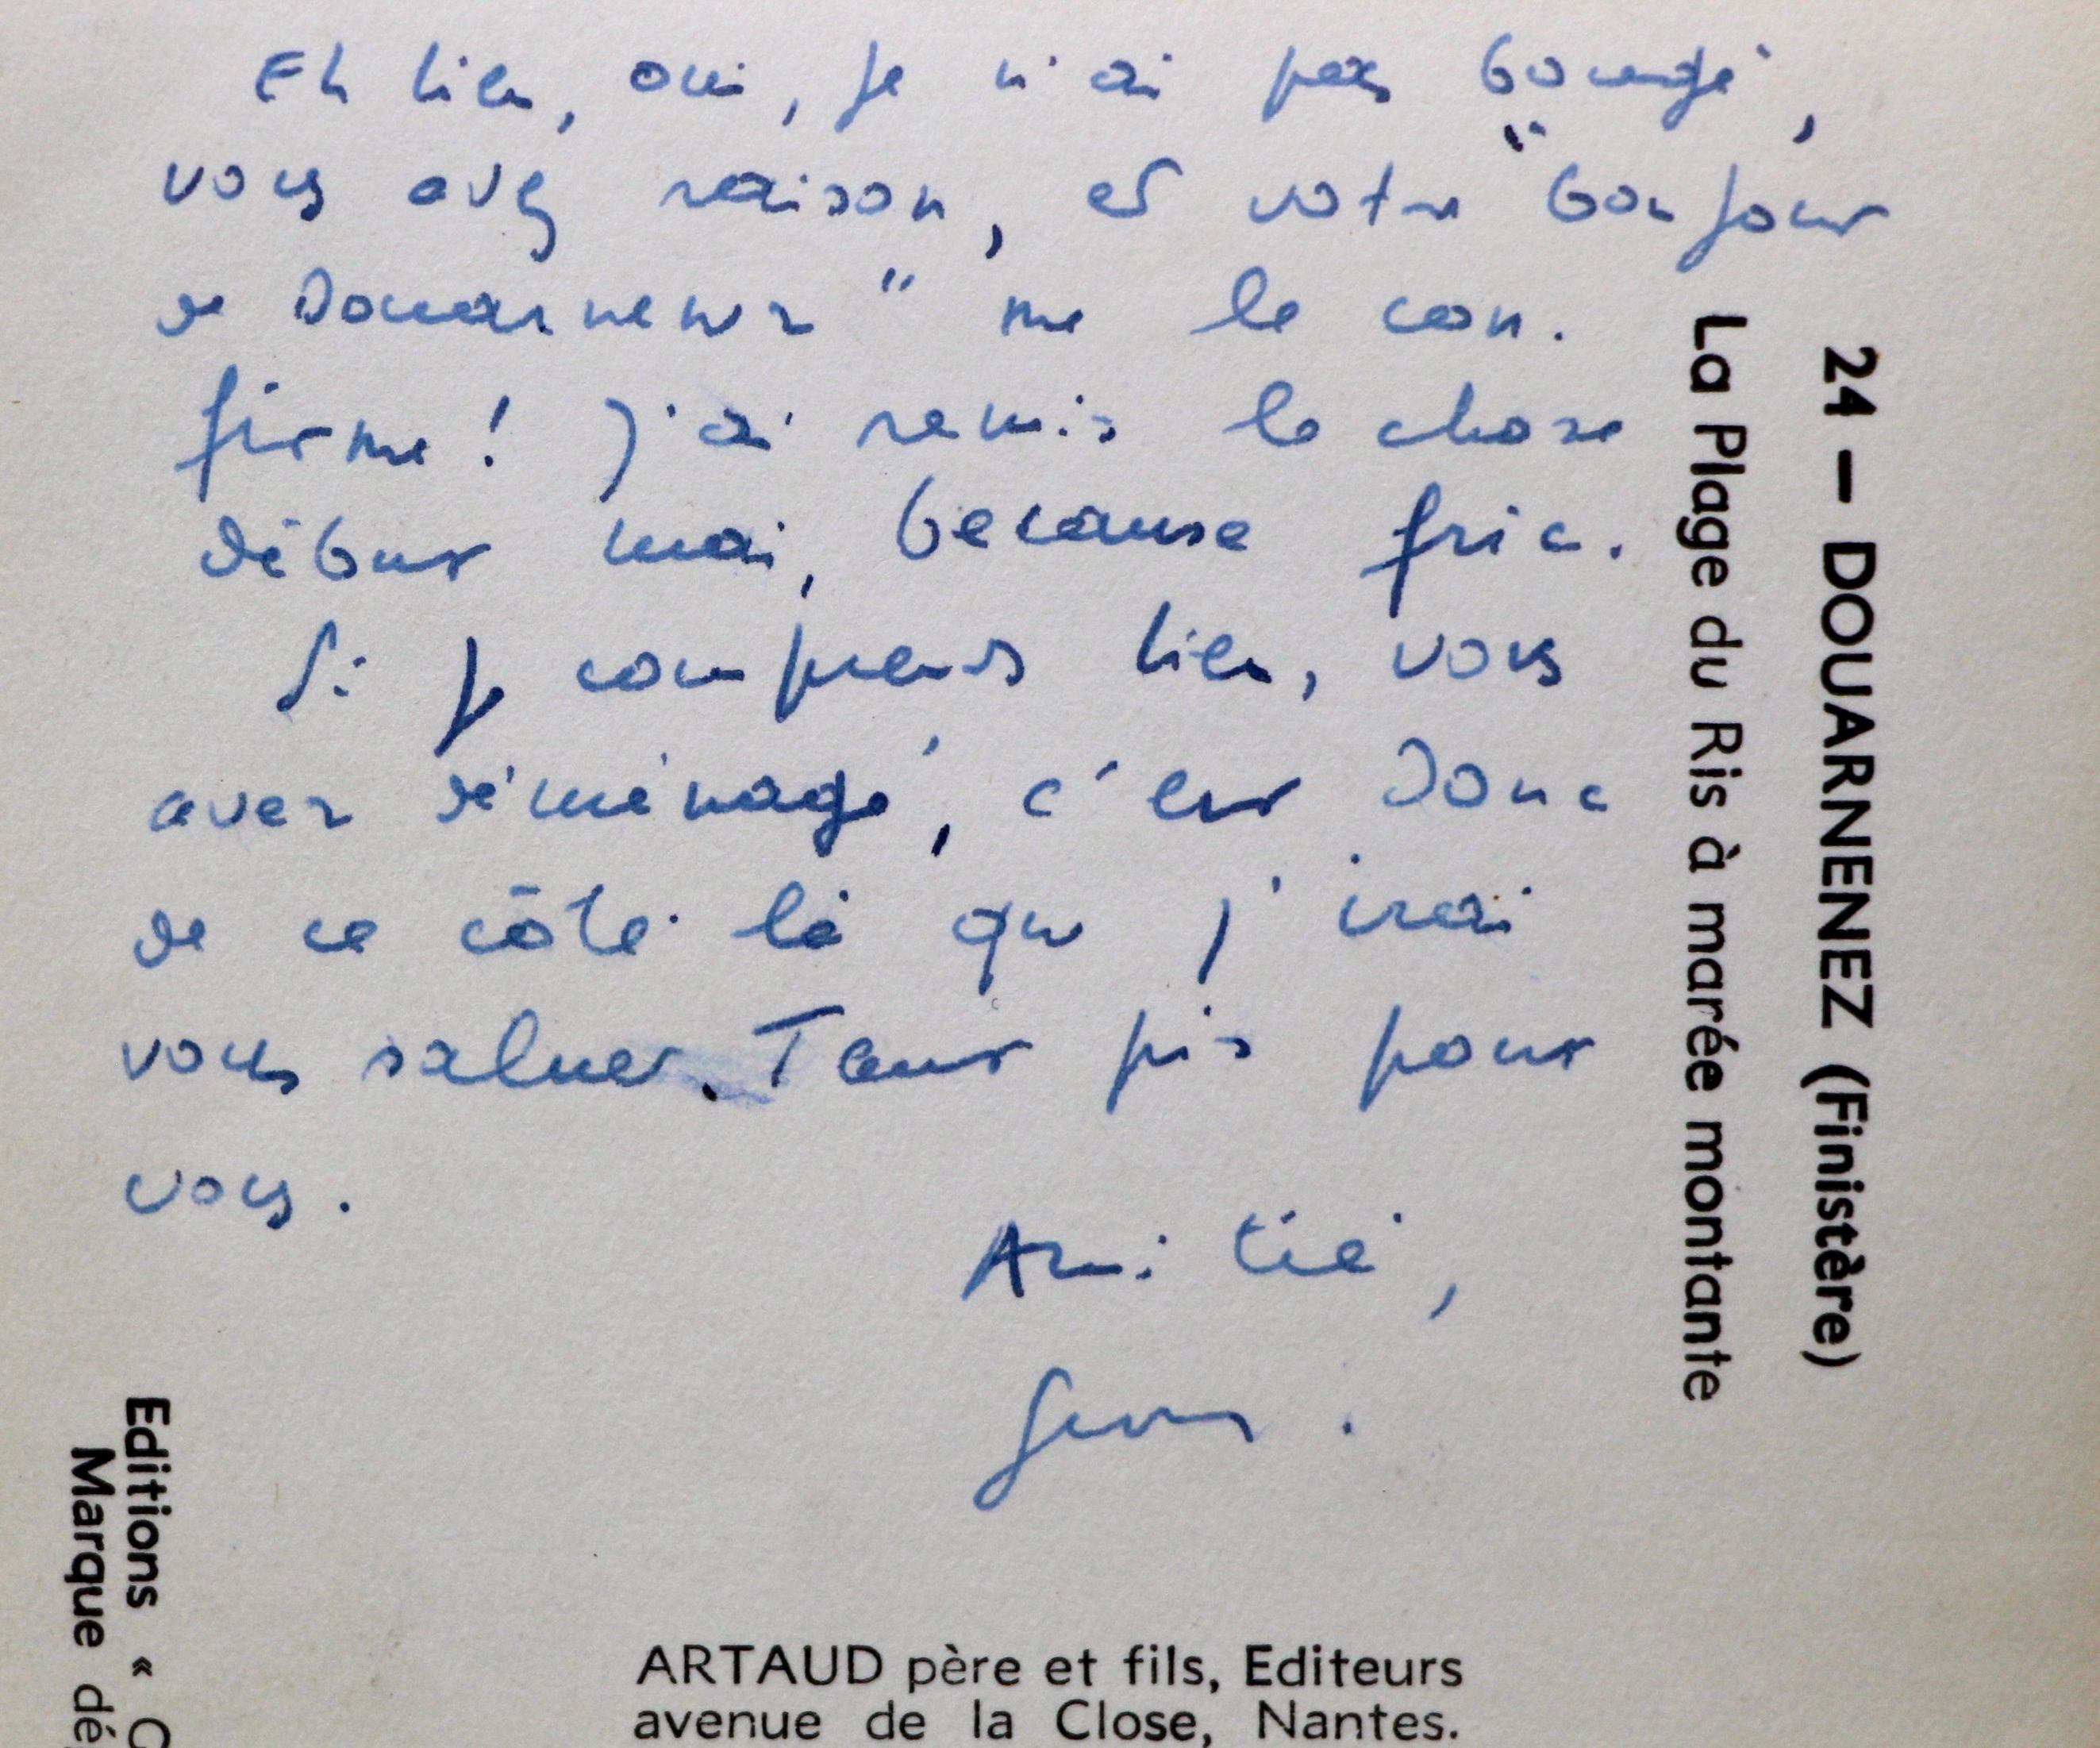 Eh bien, oui, je n'ai pas bougé,
vous avez raison, et votre "bonjour
de Douarnenez" me le con.
firme ! J'ai remis la chose
début mai, because fric.
Si je comprends bien, vous
avez déménagé, c'est donc
de ce côté là que j'irai
vous saluer. Tant pis pour
vous.
Amitié,
24 — DOUARNENEZ (Finistère)
La Plage du Ris à marée montante
Editions «
Marque
ARTAUD père et fils, Editeurs
avenue de la Close, Nantes.